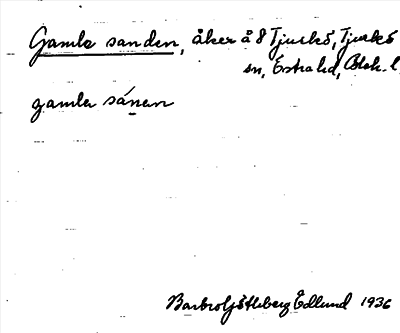 Gamla sanden, åker å 8 Tjurkö, Tjurkö
sn, Östra hd, Blek. l.
gamla sánan
Barbro Edlund 1936